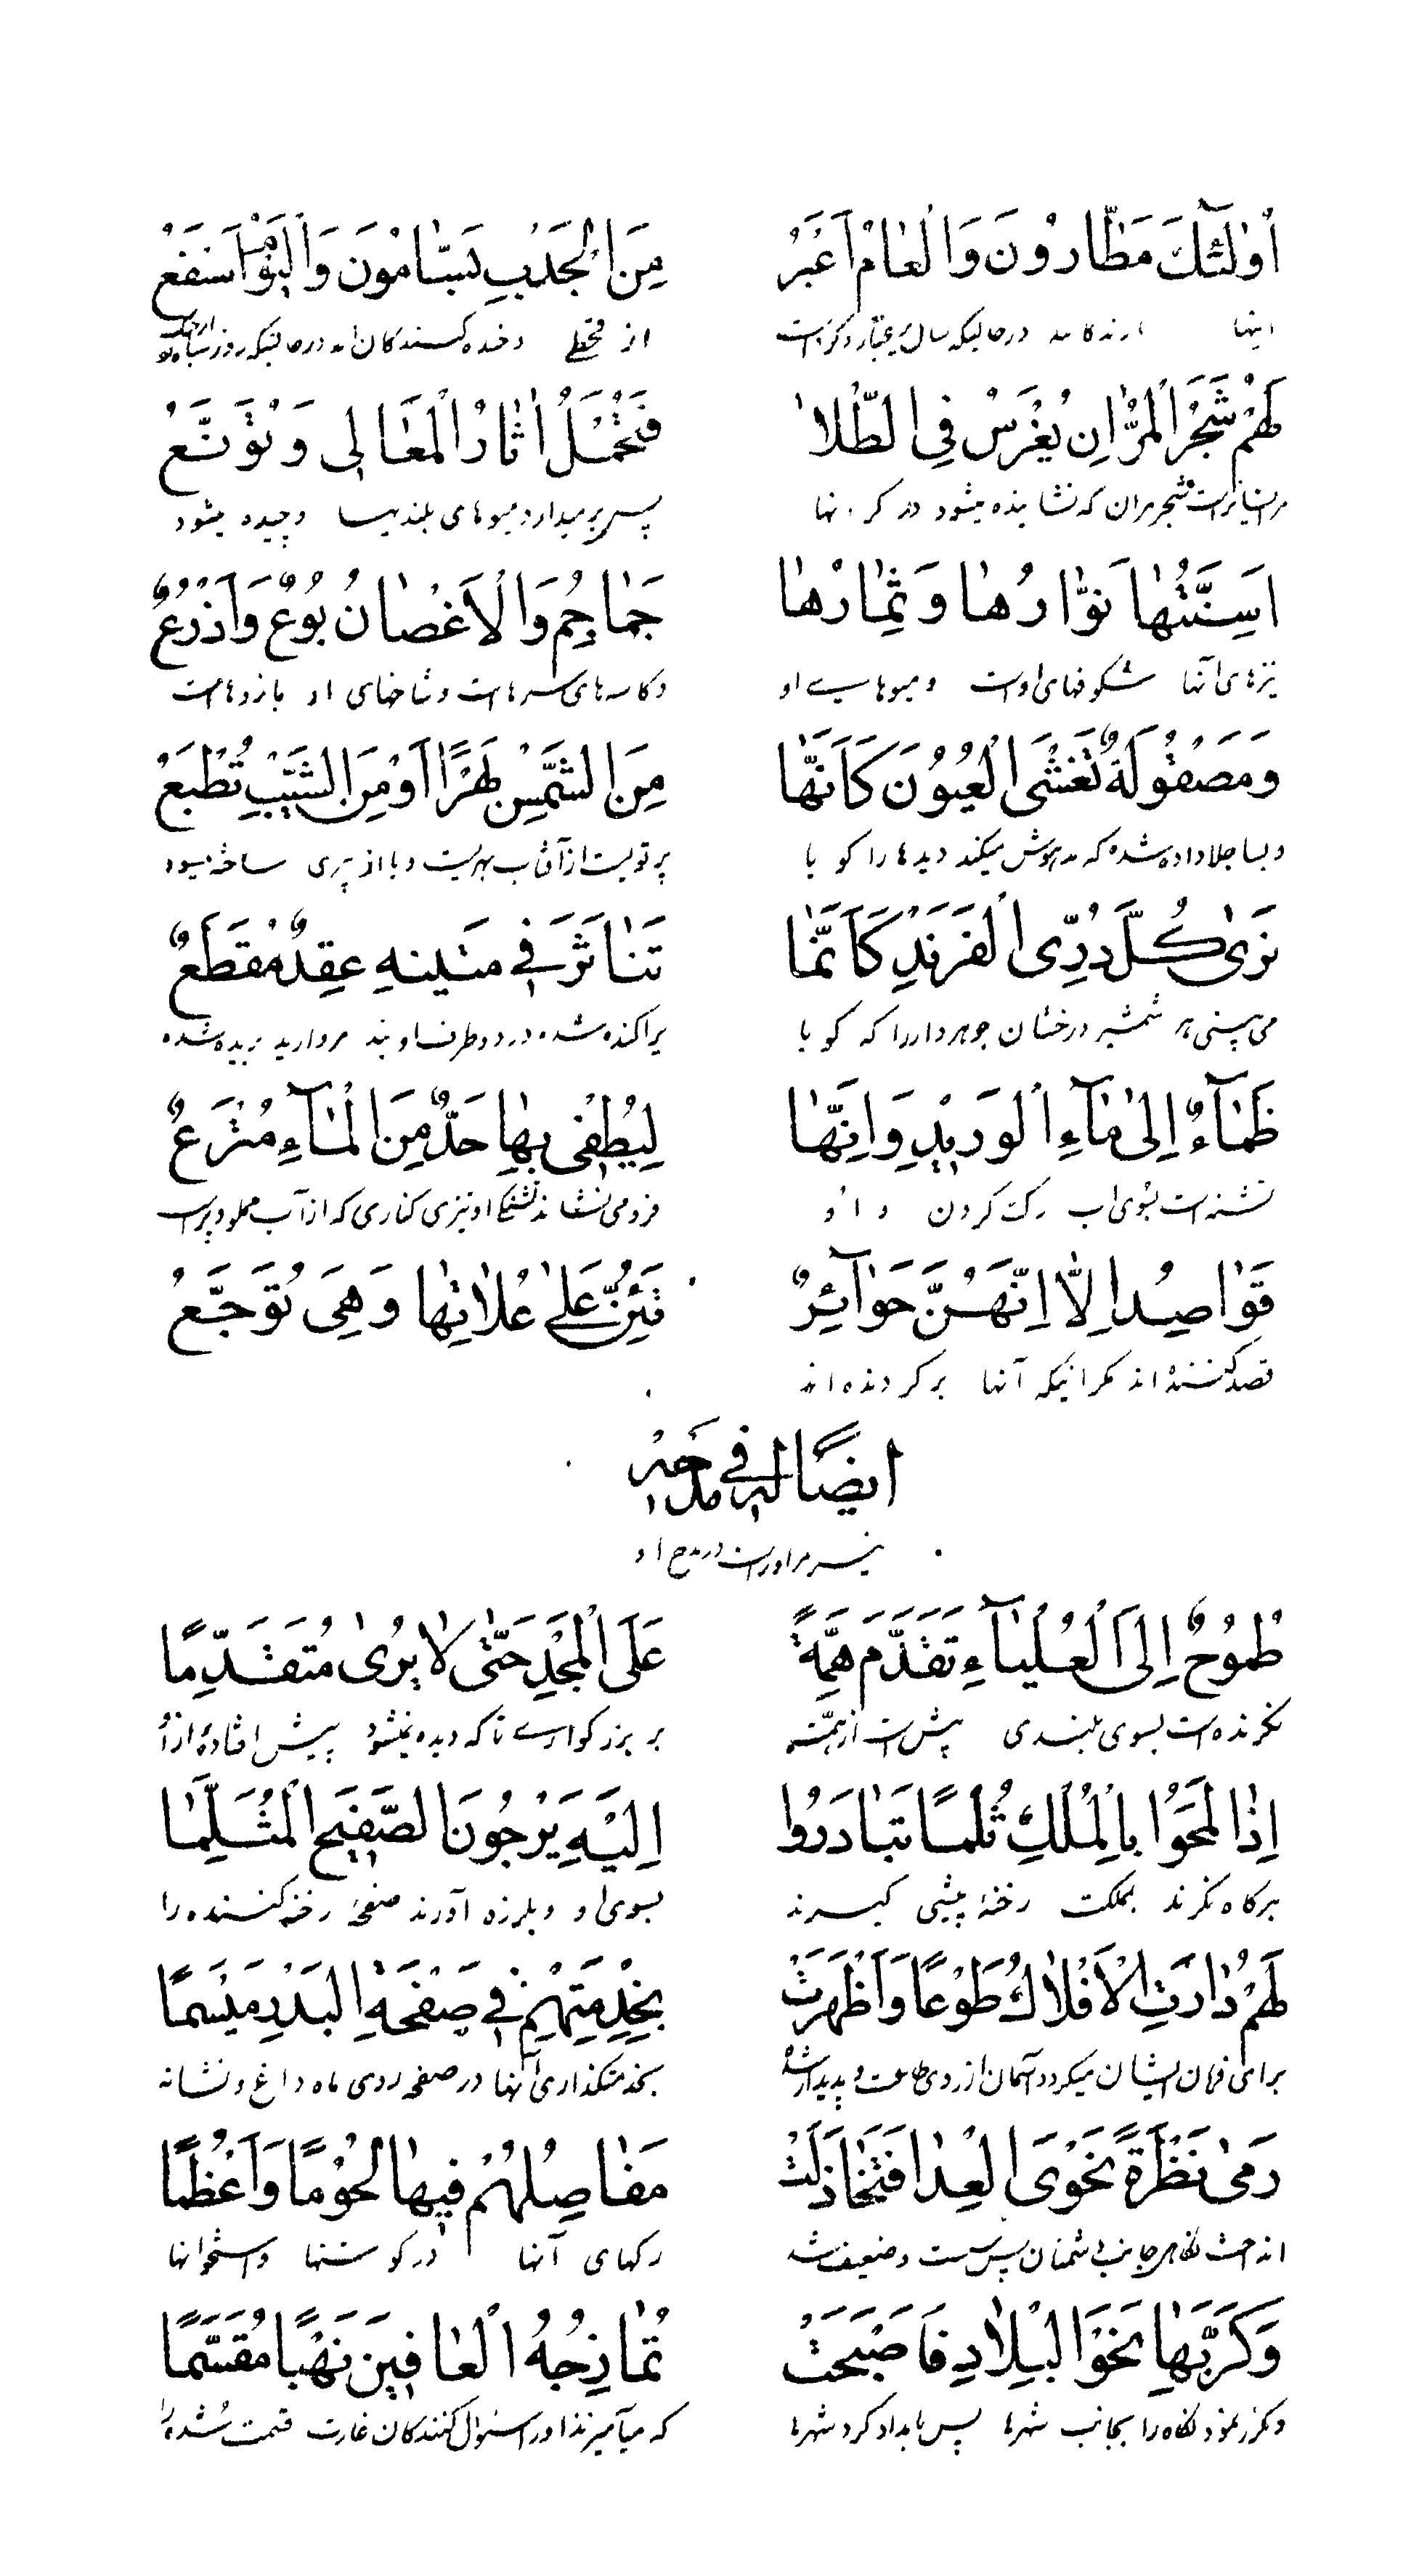 اُولٰئِكَ مَطّارُونَ وَالْعامُ اَغْبَرُ مِنَ الْجَدْبِ بَسّامُونَ وَالْيَوْمُ اَسْفَعُ
اینها در حالیکه سال از قحطی در حالیکه روز
لَهُمْ شَجَرُ الْمُرّانِ يُغْرَسُ فِي الطُّلا فَتَحْمِلُ اَثْمارُ الْمَعالِي وَتُونَعُ
شجر مران که نشانیده میشود در پس بر میدارد میوهای بلندیها و چیده میشود
اَسِنَّتُهٰا نَوّٰارُهٰا وَثِمٰارُهٰا جَمٰاجِمُ وَالْاَغْصٰانُ بُوعٌ وَاَذْرُعُ
نیزهای آنها شکوفهای اوست و میوهای او کاسه های سرهاست و شاخهای او بازوهاست
وَمَصْقُولَةٌ تُغْشَى الْعُيُونَ كَاَنَّهٰا مِنَ الشَّمْسِ اَوْ مِنَ الشَّيْبِ تُطْبَعُ
و بسا جلا داده شده که مدهوش میکند دیدها را گویا از آفتاب و یا از پیری ساخته میشود
تَرىٰ كُلَّ دُرِّى الْفَرَنْدِ كَاَنَّمٰا تَنٰاثَرَ فِي مَتْنَيْهِ عِقْدٌ مُقَطَّعٌ
می بینی هر شمشیر درخشان جوهردار را که گویا پراکنده شده در دو طرف او بند مروارید بریده شده
ظَمٰآءٌ اِلىٰ مٰآءِ الْوَرِيدِ وَاِنَّهٰا لَيُطْفِى بِهٰا حَدٌّ مِنَ الْمٰآءِ مُتْرَعٌ
تشنه است بسوی آب رگ گردن و او فرو می نشاند تشنگی او تیزی کناری که از آب مملو و پر است
قَوٰاصِدُ اِلّٰا اِنَّهُنَّ حَوٰآئِرٌ تَئِنُّ عَلىٰ عُلّاتِهٰا وَهِىَ تُوجَّعُ
قصد کننده اند مگر اینکه آنها برگردنده اند
ايضًا له فى مدحه
نیز مر اوراست در مدح او
طَمُوحٌ اِلَى الْعُلْيٰآءِ تَقَدَّمَ هِمَّةً عَلَى الْمَجْدِ حَتّىٰ لا يُرىٰ مُتَقَدِّمًا
نگرنده است بسوی بلندی پیش است از همت بر بزرگواری تا که دیده نمیشود پیش افتاده از او
اِذٰا لَمَحُوا بِالْمُلْكِ ثُلْمًا تَبٰادَرُوا اِلَيْهِ يَرْجُونَ الصَّفِيحَ الْمُثَلَّمٰا
هرگاه نگرند بمملکت رخنه پیشی گیرند بسوی او و بلرزه آورند صفحه رخنه کننده را
لَهُمْ دٰارَتِ الْاَفْلٰاكُ طَوْعًا وَاَظْهَرَتْ بِخِدْمَتِهِمْ فِي صَفْحَةِ الْبَدْرِ مَيْسَمًا
برای فرمان ایشان میگردد آسمان از روی طاعت و پدیدار شد بخدمتگذاری آنها در صفحه روی ماه داغ و نشانه
رَمىٰ نَظْرَةً نَحْوَ الْعِدٰا فَتَخٰاذَلَتْ مَفٰاصِلُهُمْ فِيهٰا لُحُومًا وَاَعْظُمًا
انداخت نگاهی بجانب دشمنان پس سست و ضعیف شد رگهای آنها در گوشتها و استخوانها
وَكَرَّ بِهٰا نَحْوَ الْبِلٰادِ فَاَصْبَحَتْ تُمٰازِجُهُ الْعٰافِينَ نَهْبًا مُقَسَّمًا
نگاه را بجانب شهرها پس بامداد کرد شهرها که میآمیزند سئوال کنندگان غارت قسمت شده را